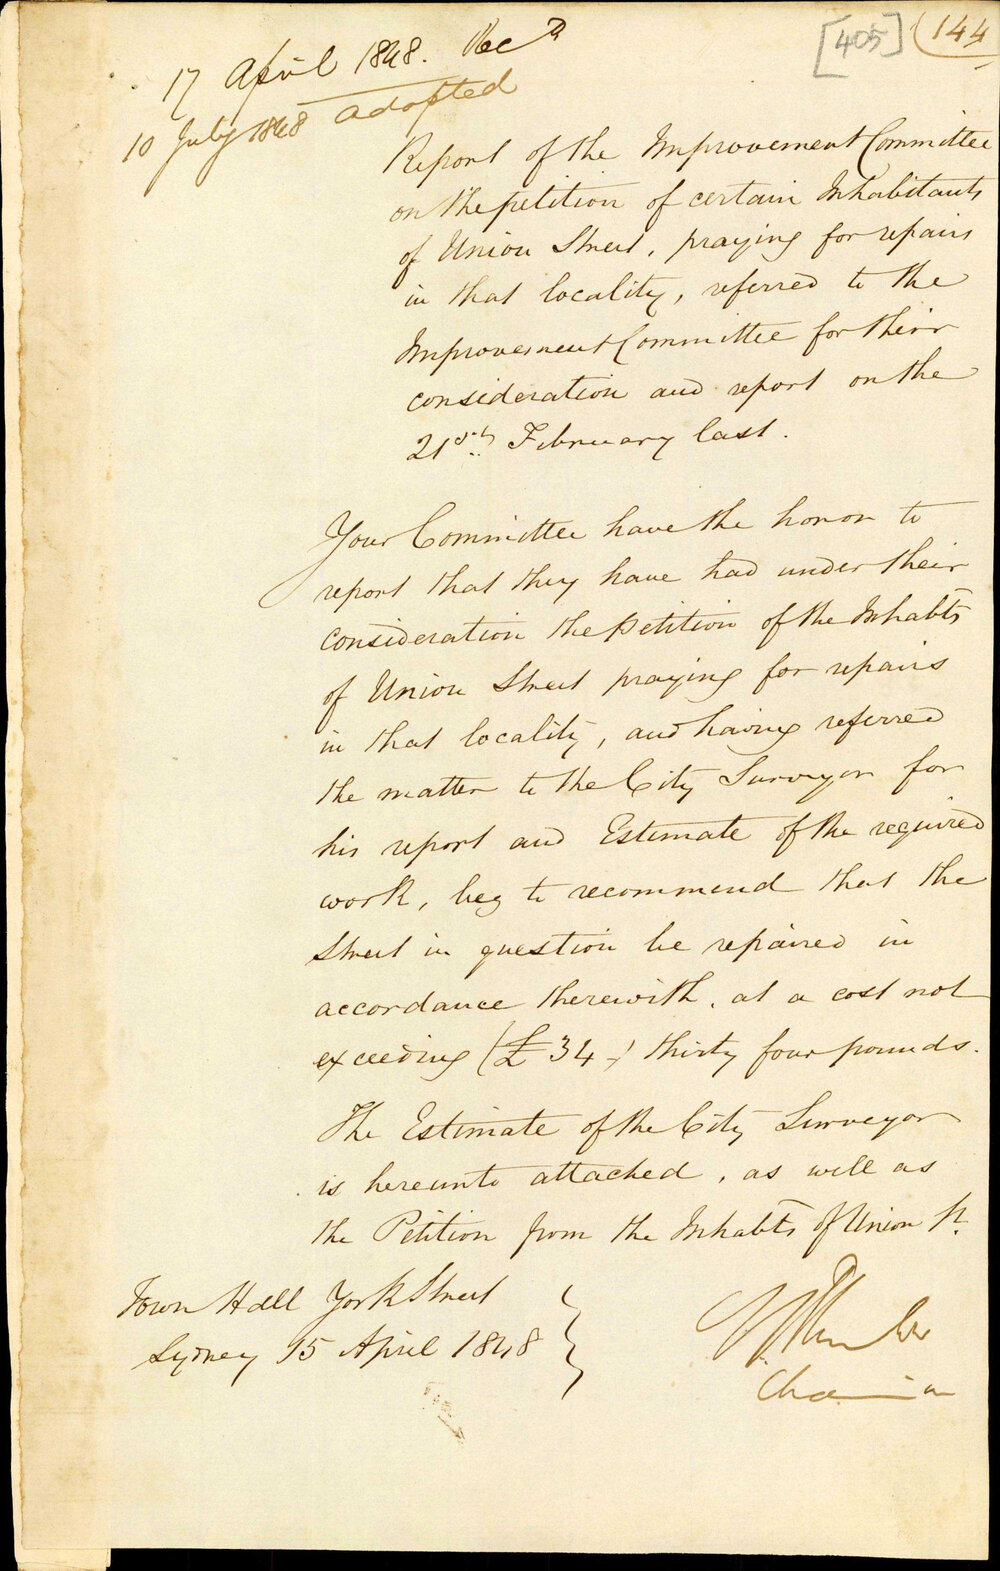 [405] 144
17 April 1848. Recd
10 July 1848 adopted
Report of the Improvement Committee
on the petition of certain Inhabitants
of Union Street, praying for repairs
in that locality, referred to the
Improvement Committee for their
consideration and report on the
21st February last.
Your Committee have the honor to
report that they have had under their
consideration the Petition of the Inhabts
of Union Street praying for repairs
in that locality, and having referred
the matter to the City Surveyor for
his report and Estimate of the required
work, beg to recommend that the
Street in question be repaired in
accordance therewith, at a cost not
exceeding (£34-) thirty four pounds.
The Estimate of the City Surveyor
is hereunto attached, as well as
the Petition from the Inhabts of Union St.
Town Hall York Street
Sydney 15 April 1848
Chairman